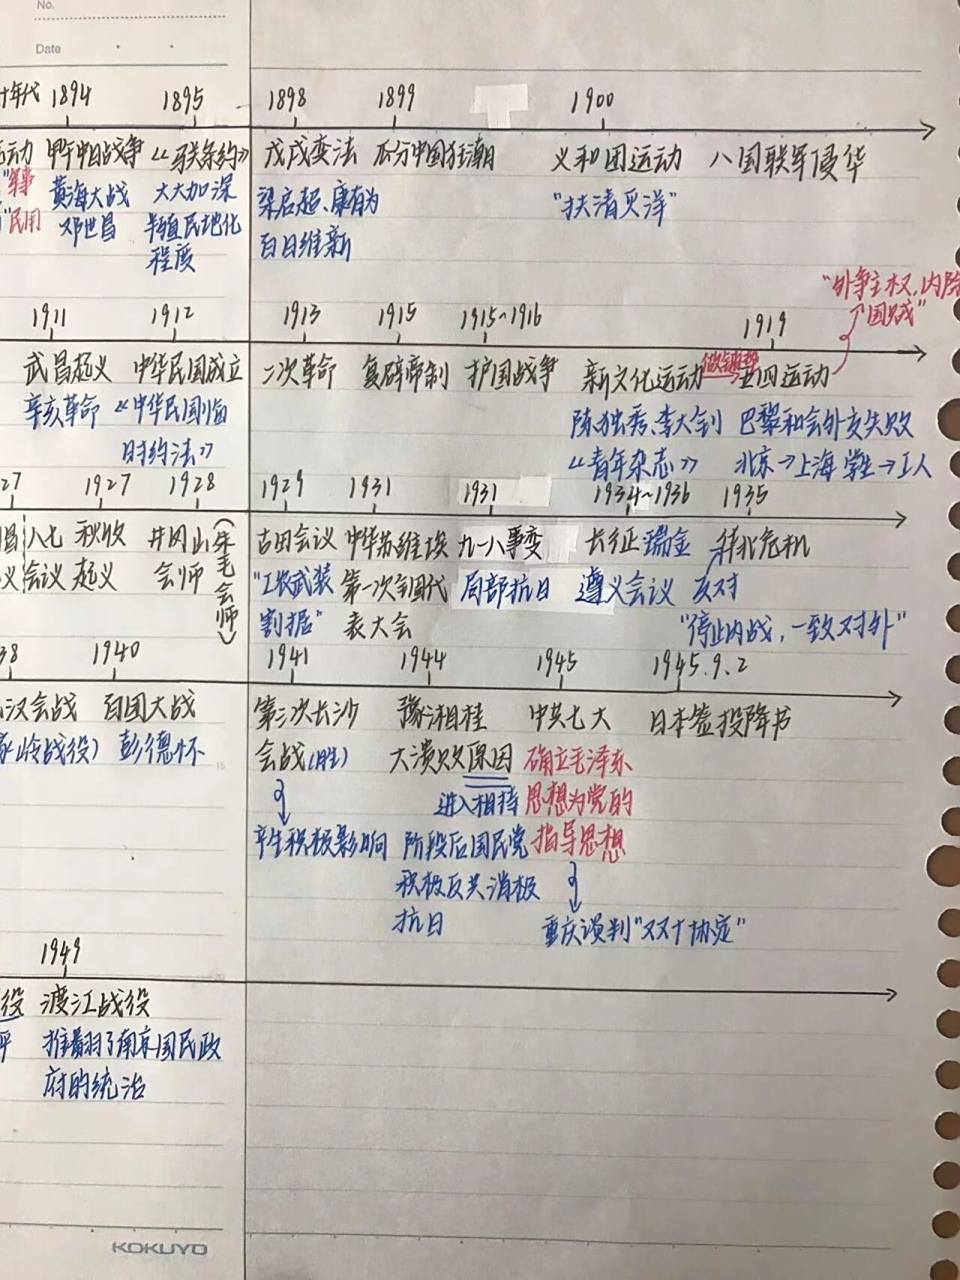 No.
Date
十年代 1894 1895 1898 1899 1900
运动 甲午中日战争 《马关条约》 戊戌变法 瓜分中国狂潮 义和团运动 八国联军侵华
"军事 黄海大战 大大加深 梁启超、康有为 "扶清灭洋"
"民用 邓世昌 半殖民地化 百日维新
程度
"外争主权,内除
国贼"
1911 1912 1913 1915 1915~1916 1919
武昌起义 中华民国成立 二次革命 复辟帝制 护国战争 新文化运动 五四运动
辛亥革命 《中华民国临 陈独秀、李大钊 巴黎和会外交失败
时约法》 《青年杂志》 北京→上海 学生→工人
27 1927 1928 1929 1931 1931 1934~1936 1935
昌 八七 秋收 井冈山 (朱毛会师) 古田会议 中华苏维埃 九一八事变 长征 瑞金 华北危机
义 会议 起义 会师 "工农武装 第一次全国代 局部抗日 遵义会议 反对
割据" 表大会 "停止内战,一致对外"
38 1940 1941 1944 1945 1945.9.2
武汉会战 百团大战 第三次长沙 豫湘桂 中共七大 日本签投降书
家岭战役) 彭德怀 会战(胜) 大溃败原因 确立毛泽东
进入相持 思想为党的
产生积极影响 阶段后国民党 指导思想
积极反共消极
抗日 重庆谈判"双十协定"
1949
役 渡江战役
平 推翻了南京国民政
府的统治
KOKUYO